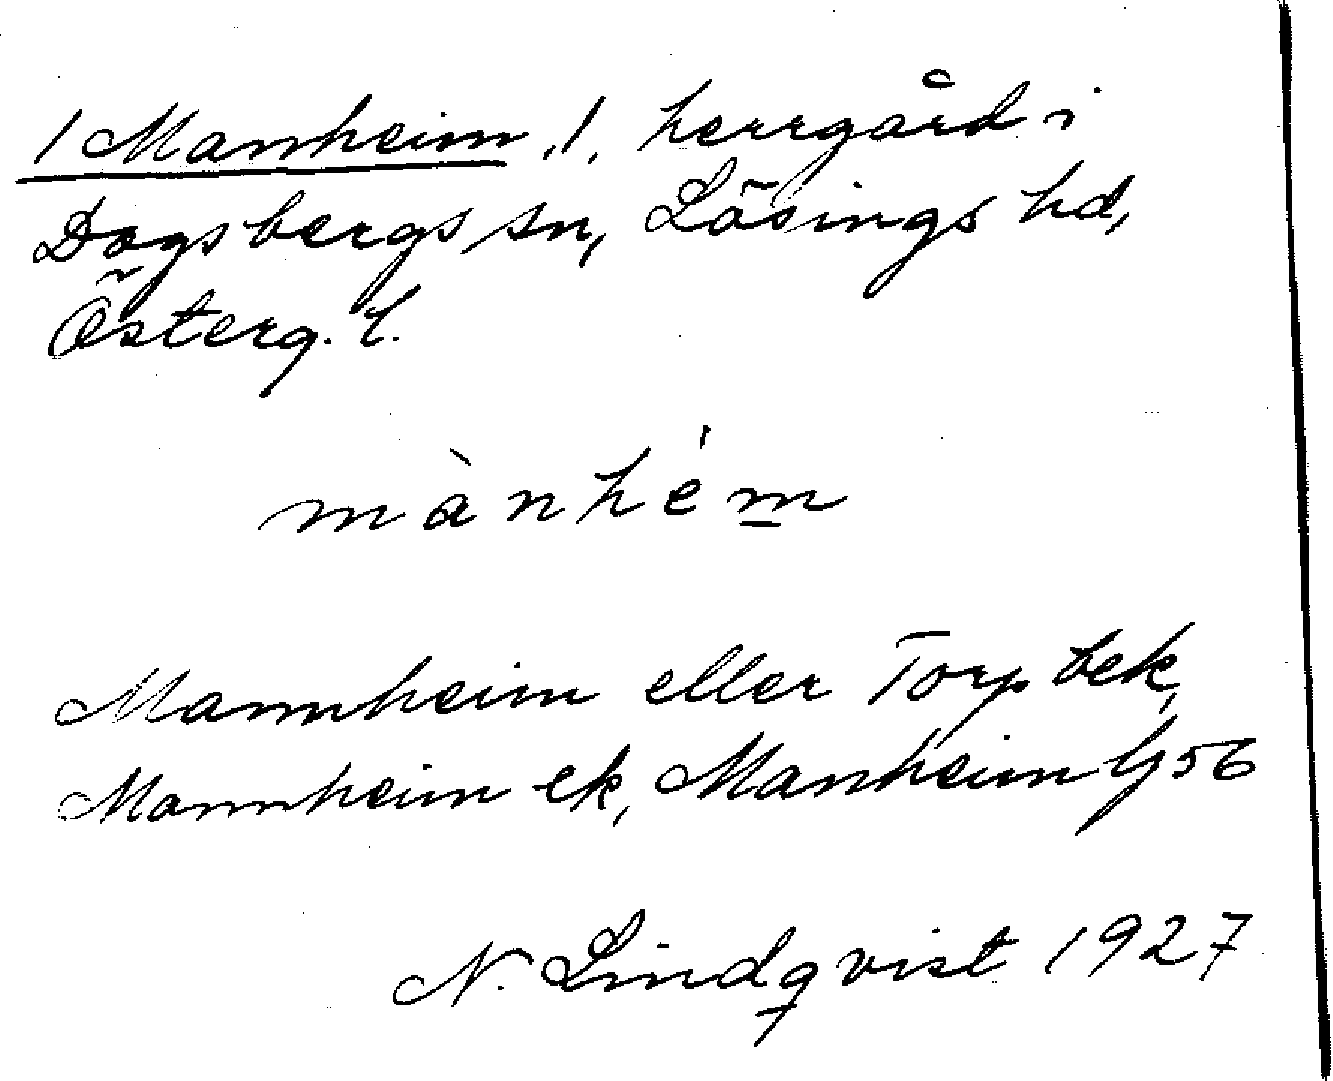 /Manheim, 1. herrgård i
Dagsbergs sn, Lösings hd,
Österg. l.
mànhém
Mannheim eller Torp bek,
Mannheim ek, Manheim G 56
N. Lindqvist 1927